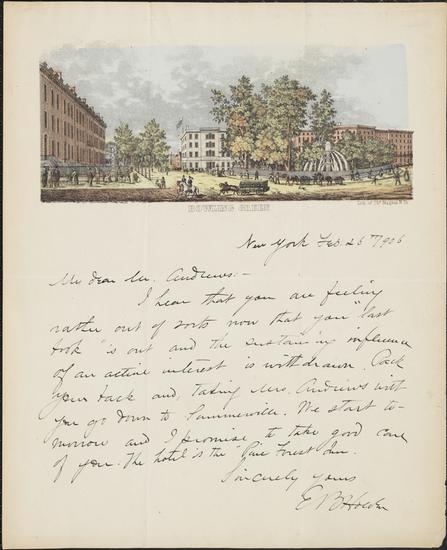 BOWLING GREEN
New York Feb. 26th 1906
My dear Mr. Andrews:-
I hear that you are feeling
rather out of sorts now that you "last
book" is out and the sustaining influence
of an active interest is withdrawn. Pack
your back and, taking Mrs. Andrews with
you go down to Summerville. We start to-
morrow and I promise to take good care
of you. The hotel is the "Pine Forest Inn.
Sincerely yours
E B Holden